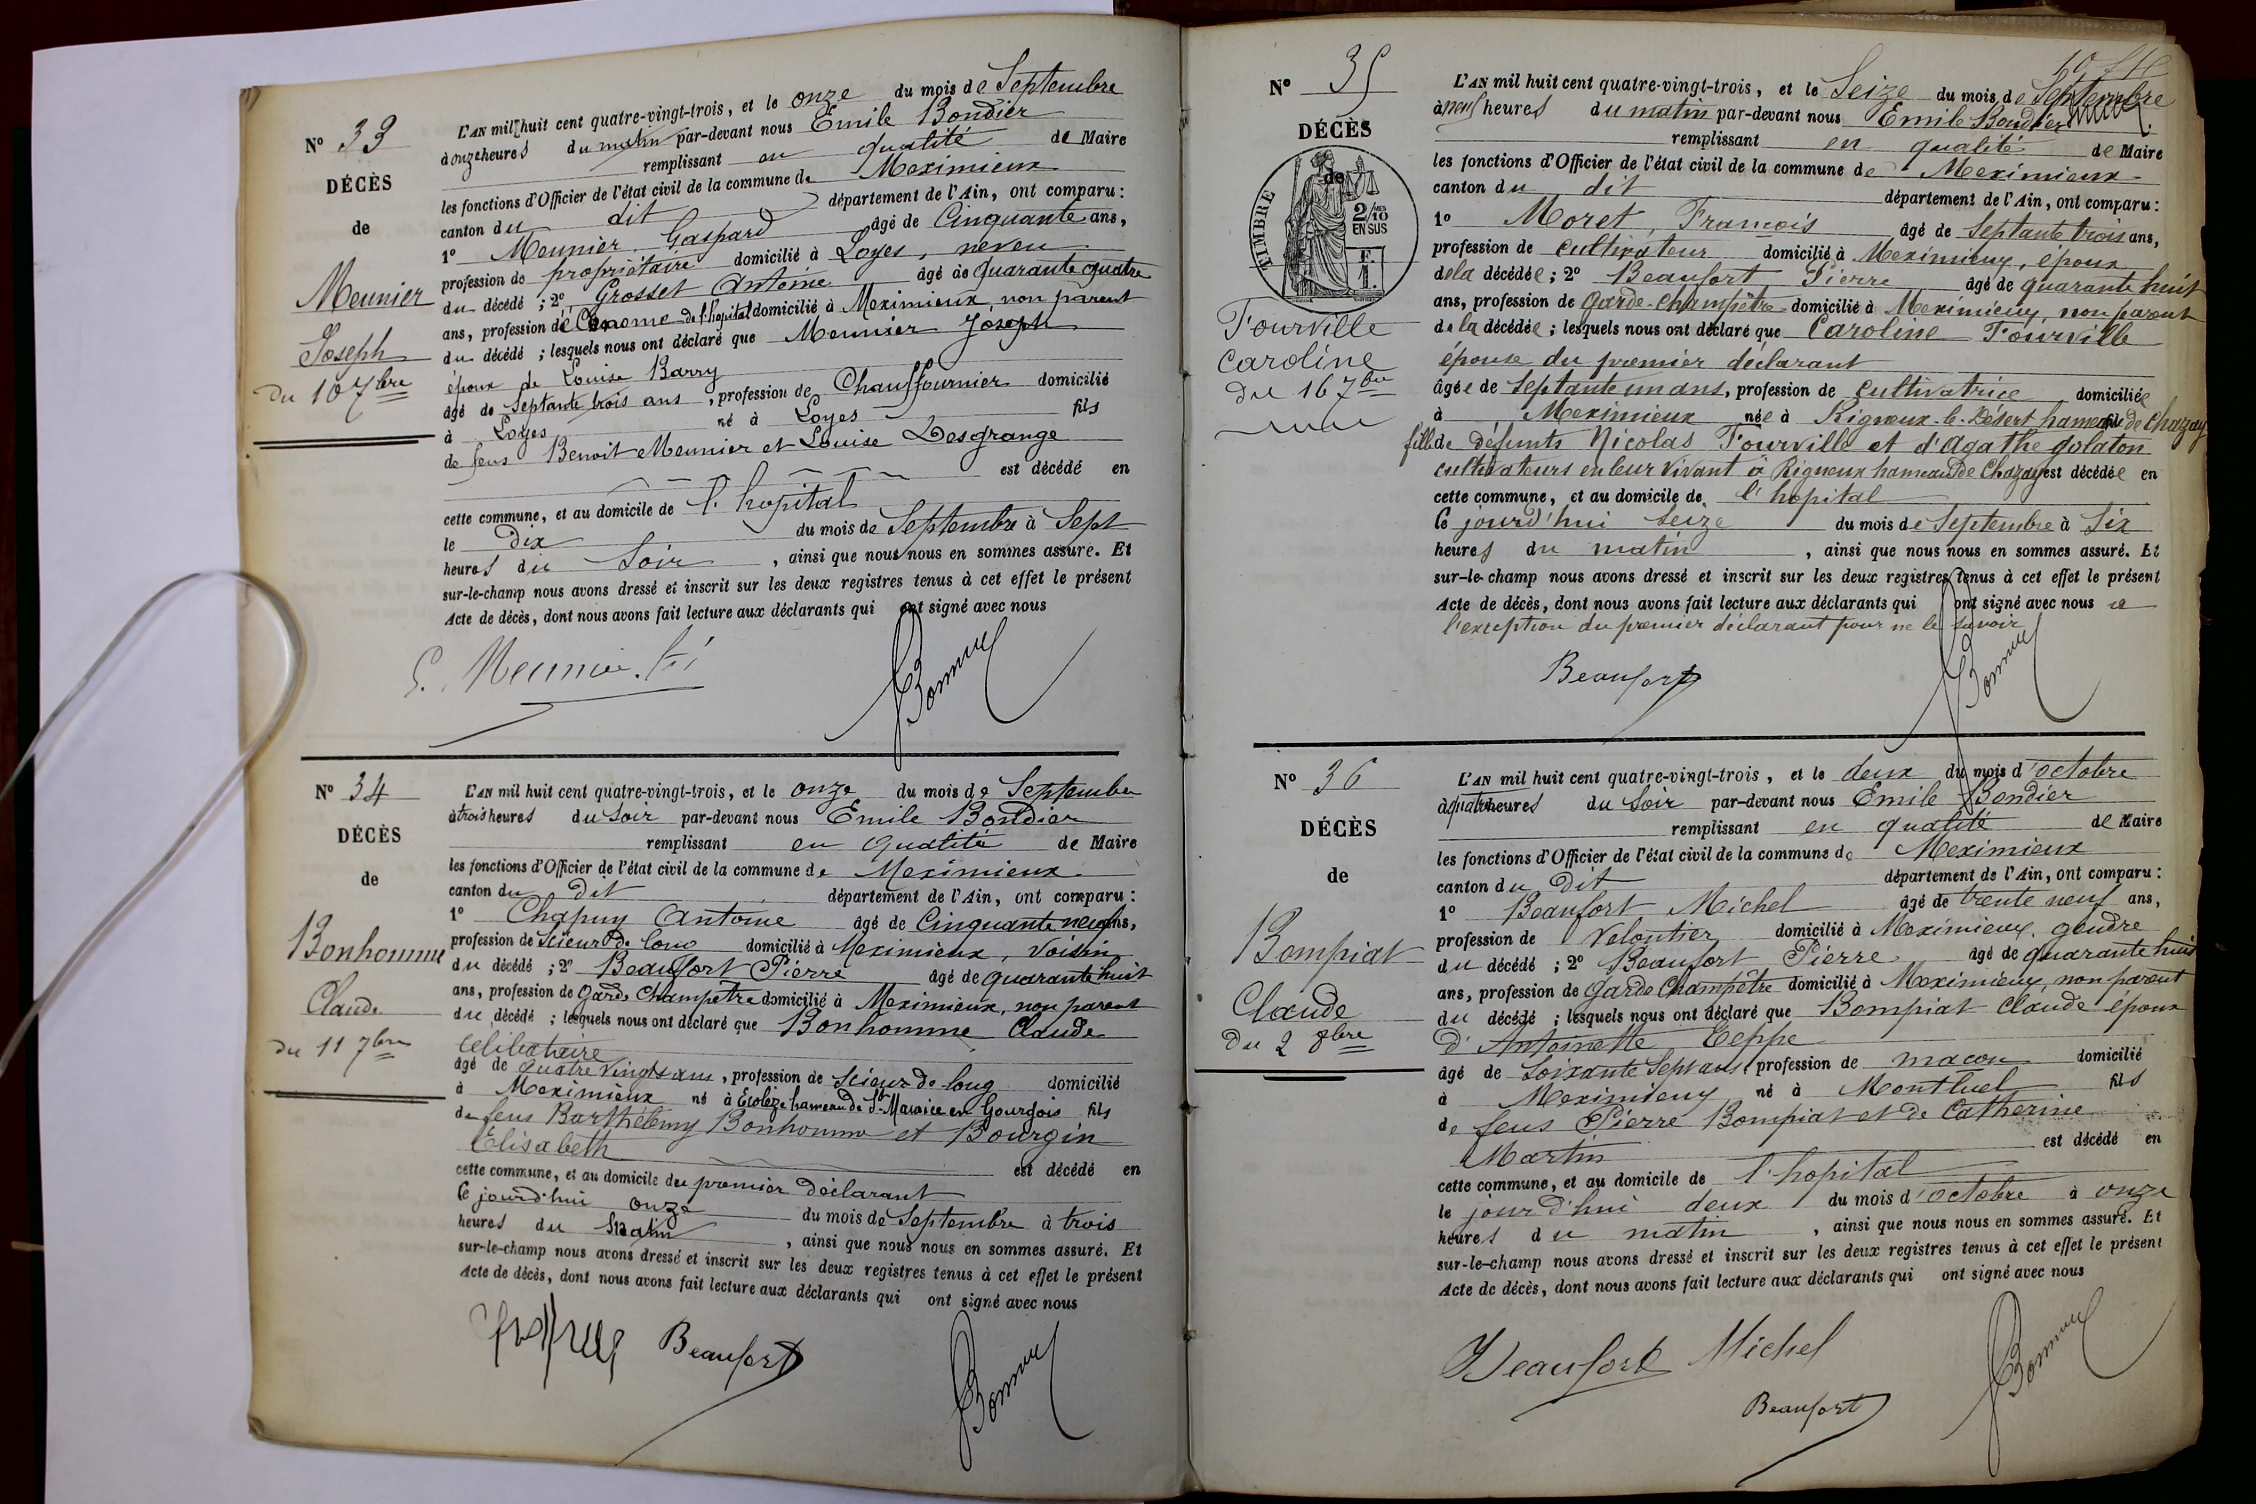 N° 33
DÉCÈS
de
Meunier
Joseph
du 10 7bre
L'AN mil huit cent quatre-vingt-trois, et le onze du mois de Septembre
à onze heures du matin par-devant nous Emile Bondier
remplissant en qualité de Maire
les fonctions d'Officier de l'état civil de la commune de Meximieux
canton du dit département de l'Ain, ont comparu :
1° Meunier Gaspard âgé de Cinquante ans,
profession de propriétaire domicilié à Loyes, neveu
du décédé ; 2° Grosset Antoine âgé de quarante quatre
ans, profession de Econome de l'hopital domicilié à Meximieux, non parent
du décédé ; lesquels nous ont déclaré que Meunier Joseph
époux de Louise Barry
âgé de Septante trois ans, profession de Chauffournier domicilié
à Loyes né à Loyes fils
de feus Benoit Meunier et Louise Desgrange
est décédé en
cette commune, et au domicile de l'hopital
le Dix du mois de Septembre à Sept
heures du Soir, ainsi que nous nous en sommes assuré. Et
sur-le-champ nous avons dressé et inscrit sur les deux registres tenus à cet effet le présent
Acte de décès, dont nous avons fait lecture aux déclarants qui ont signé avec nous
N° 34
DÉCÈS
de
Bonhomme
Claude
du 11 7bre
L'AN mil huit cent quatre-vingt-trois, et le onze du mois de Septembre
à trois heures du Soir par-devant nous Emile Bondier
remplissant en qualité de Maire
les fonctions d'Officier de l'état civil de la commune de Meximieux
canton du dit département de l'Ain, ont comparu :
1° Chapuy Antoine âgé de Cinquante neuf ans,
profession de Scieur de long domicilié à Meximieux, voisin
du décédé ; 2° Beaufort Pierre âgé de quarante huit
ans, profession de Garde Champêtre domicilié à Meximieux, non parent
du décédé ; lesquels nous ont déclaré que Bonhomme Claude
Célibataire
âgé de quatre vingts ans, profession de Scieur de long domicilié
à Meximieux né à Ecoleze hameau de St Maurice en Gourgois fils
de feus Barthélemy Bonhomme et Bourgin
Elisabeth
est décédé en
cette commune, et au domicile du premier déclarant
Ce jourd'hui onze du mois de Septembre à trois
heures du Matin, ainsi que nous nous en sommes assuré. Et
sur-le-champ nous avons dressé et inscrit sur les deux registres tenus à cet effet le présent
Acte de décès, dont nous avons fait lecture aux déclarants qui ont signé avec nous
Beaufort
N° 35
DÉCÈS
de
TIMBRE
2/10 EN SUS
F. 1.
Fourville
Caroline
du 16 7bre
L'AN mil huit cent quatre-vingt-trois, et le Seize du mois de Septembre
à neuf heures du matin par-devant nous Emile Bondier
remplissant en qualité de Maire
les fonctions d'Officier de l'état civil de la commune de Meximieux
canton du dit département de l'Ain, ont comparu :
1° Moret, Francois âgé de Septante trois ans,
profession de Cultivateur domicilié à Meximieux, époux
de la décédée ; 2° Beaufort Pierre âgé de quarante huit
ans, profession de Garde-champêtre domicilié à Meximieux, non parent
de la décédée ; lesquels nous ont déclaré que Caroline Fourville
épouse du premier déclarant
âgée de Septante un ans, profession de Cultivatrice domiciliée
à Meximieux née à Rigneux-le-Désert hameau de Chazay
fille de défunts Nicolas Fourville et d'Agathe Golaton
cultivateurs en leur vivant à Rigneux hameau de Chazay est décédée en
cette commune, et au domicile de l'hopital
Ce jourd'hui seize du mois de Septembre à Six
heures du matin, ainsi que nous nous en sommes assuré. Et
sur-le-champ nous avons dressé et inscrit sur les deux registres tenus à cet effet le présent
Acte de décès, dont nous avons fait lecture aux déclarants qui ont signé avec nous à
l'exception du premier déclarant pour ne le savoir
Beaufort
N° 36
DÉCÈS
de
Bompiat
Claude
du 2 8bre
L'AN mil huit cent quatre-vingt-trois, et le deux du mois d'octobre
à quatre heures du Soir par-devant nous Emile Bondier
remplissant en qualité de Maire
les fonctions d'Officier de l'état civil de la commune de Meximieux
canton du Dit département de l'Ain, ont comparu :
1° Beaufort Michel âgé de trente neuf ans,
profession de Veloutier domicilié à Meximieux, gendre
du décédé ; 2° Beaufort Pierre âgé de quarante huit
ans, profession de Garde Champêtre domicilié à Meximieux, non parent
du décédé ; lesquels nous ont déclaré que Bompiat Claude époux
d'Antoinette Teppe
âgé de Soixante Sept ans, profession de macon domicilié
à Meximieux né à Montluel fils
de feus Pierre Bompiat et de Catherine
Martin est décédé en
cette commune, et au domicile de l'hopital
le jourd'hui deux du mois d'octobre à onze
heures du matin, ainsi que nous nous en sommes assuré. Et
sur-le-champ nous avons dressé et inscrit sur les deux registres tenus à cet effet le présent
Acte de décès, dont nous avons fait lecture aux déclarants qui ont signé avec nous
Beaufort Michel
Beaufort